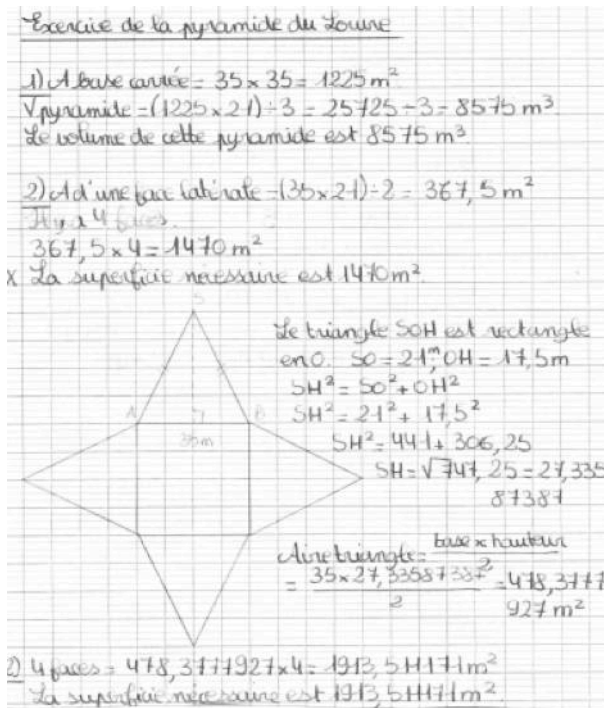 Exercice de la pyramide du Louvre
1) A base carrée = 35 × 35 = 1225 m²
V pyramide = (1225 × 21) ÷ 3 = 25725 ÷ 3 = 8575 m³
Le volume de cette pyramide est 8575 m³
2) A d'une face latérale = (35 × 21) ÷ 2 = 367,5 m²
Il y a 4 faces.
367,5 × 4 = 1470 m²
x La superficie nécessaire est 1470 m².
S
A
B
35m
Le triangle SOH est rectangle
en O. SO = 21 m, OH = 17,5 m
SH² = SO² + OH²
SH² = 21² + 17,5²
SH² = 441 + 306,25
SH = √747,25 = 27,335
87387
Aire triangle = base × hauteur / 2
= 35 × 27,33587387 / 2 = 478,3777
927 m²
2) 4 faces = 478,3777927 × 4 = 1913,511171 m²
La superficie nécessaire est 1913,511171 m².